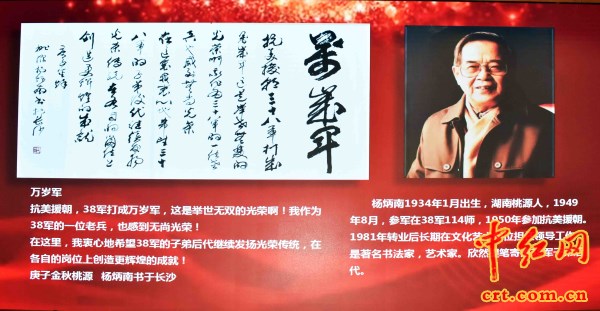 萬歲军
抗美援朝三十八军打成
万岁军这是举世无双的
光荣啊我作为三十八军的一位老
兵也感到无尚光荣
在这里我衷心地希望三十
八军的子弟后代继续发扬
光荣传统在各自的岗位上
创造更辉煌的成就
庚子金秋
桃源杨炳南书于长沙
万岁军
抗美援朝，38军打成万岁军，这是举世无双的光荣啊！我作为
38军的一位老兵，也感到无尚光荣！
在这里，我衷心地希望38军的子弟后代继续发扬光荣传统，在
各自的岗位上创造更辉煌的成就！
庚子金秋桃源 杨炳南书于长沙
杨炳南1934年1月出生，湖南桃源人，1949
年8月，参军在38军114师，1950年参加抗美援朝。
1981年转业后长期在文化艺 位担 领导工作
是著名书法家，艺术家。欣然 笔寄 军
代。
中红网
crt.com.cn